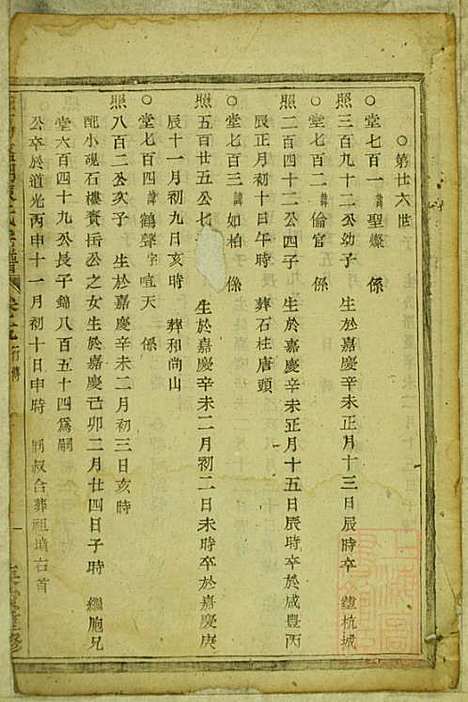 ○第廿六世
○堂七百一 諱聖燦 係
照三百九十二公幼子 生於嘉慶辛未正月十三日辰時卒 杭城
○堂七百二 諱倫官 係
照二百四十二公次子 生於嘉慶辛未正月十五日辰時卒於咸豐丙
辰正月初十日午時 葬石柱唐頭
○堂七百三 諱如柏 係
照五百廿五公七 生於嘉慶辛未二月初二日未時卒於嘉慶庚
辰十一月初九日亥時 葬和尚山
○堂七百四 諱鶴聲字喧天 係
照八百二公次子 生於嘉慶辛未二月初三日亥時
配小硯石樓賓岳公之女生於嘉慶己卯二月廿四日子時 繼胞兄
堂六百四十九公長子錦八百五十四爲嗣
公卒於道光丙申十一月初十日申時 叔合葬祖墳右首